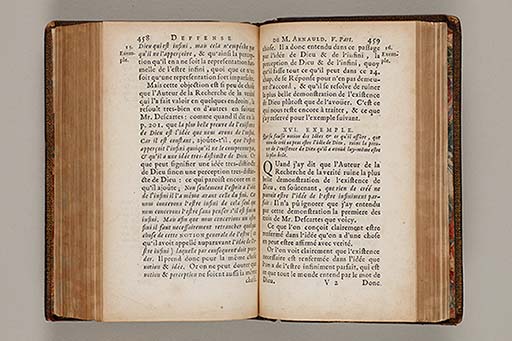 458 DEFFENSE
15. Exemple.
Dieu qui est infini, mais cela n'empéche pas
qu'il ne l'apperçoive, & qu'ainsi la percep-
tion qu'il en a ne soit la représentation for-
melle de l'estre infini, quoi que ce n'en
soit qu'une représentation fort imparfaite.
Mais cette objection est si peu de chose
que l'Auteur de la Recherche de la verité
qui l'a fait valoir en quelques endroits, la
resout tres-bien en d'autres en suivant
Mr. Descartes: comme quand il dit en la
p. 201. que la plus belle preuve de l'existence
de Dieu est l'idée que nous avons de l'infini.
Car il est constant, ajoûte-t'il, que l'esprit
apperçoit l'infini quoiqu'il ne le comprenne pas,
& qu'il a une idée tres-distincte de Dieu. Or
que peut signifier une idée tres-distincte
de Dieu sinon une perception tres-distin-
cte de Dieu: ce qui paroist encore en ce
qu'il ajoûte; Non seulement l'esprit a l'idée
de l'infini il l'a même avant celle du fini. Car
nous concevons l'estre infini de cela seul que
nous concevons l'estre sans penser s'il est fini ou
infini. Mais afin que nous concevions un estre
fini il faut necessairement retrancher quelque
chose de cette NOTION generale de l'estre; ce
qu'il avoit appellé auparavant l'idée de l'e-
stre infini; laquelle par consequent doit préce-
der. Il prend donc pour la même chose
notion & idée. Or on ne peut douter que
notion & perception ne soient aussi la même
chose
DE M. ARNAULD. V. Part. 459
16. Exemple.
chose. Il a donc entendu dans ce passage
par l'idée de Dieu & de l'infini, la
perception de Dieu & de l'infini, quoy
qu'il faille tout ce qu'il peut dans ce 24.
chap. de sa Réponse pour n'en pas demeu-
rer d'accord, & qu'il se resolve de ruiner
la plus belle demonstration de l'existence
de Dieu plûtost que de l'avoüer. C'est ce
qui nous reste encore à traiter, & ce que
j'ay reservé pour l'exemple suivant.
XVI. EXEMPLE.
Que sa fausse notion des Idées & ce qu'il assûre, que
rien de créé ne peut estre l'idée de Dieu, ruine la preu-
ve de l'existence de Dieu qu'il a avoüé luy-même estre
la plus belle.
QUand j'ay dit que l'Auteur de la
Recherche de la verité ruine la plus
belle demonstration de l'existence de
Dieu, en soûtenant, que rien de créé ne
pouvoit estre l'idée de l'estre infiniment par-
fait: Il n'a pû ignorer que j'ay entendu
par cette demonstration la premiere des
trois de Mr. Descartes que voicy.
Ce que l'on conçoit clairement estre
renfermé dans l'idée qu'on a d'une chose
en peut estre affirmé avec verité.
Or l'on voit clairement que l'existence
necessaire est renfermée dans l'idée que
l'on a de l'estre infiniment parfait, qui est
ce que tout le monde entend par le mot de
Dieu.
V 2 Donc